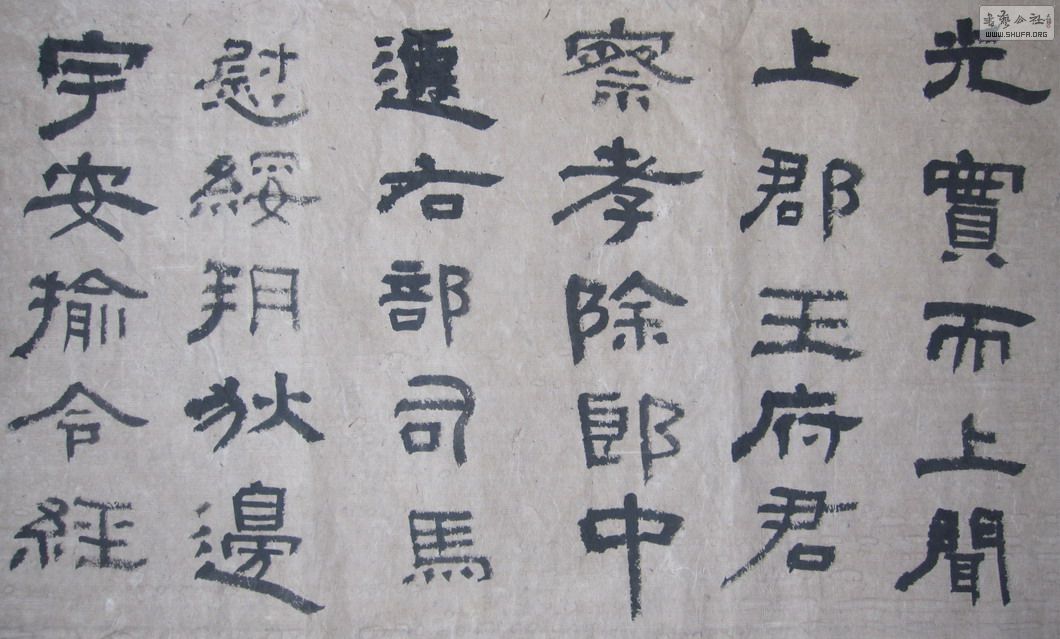 光實而上聞
上郡王府君
察孝除郎中
遷右部司馬
慰綏朔狄邊
宇安揄令經
書藝公社
WWW.SHUFA.ORG